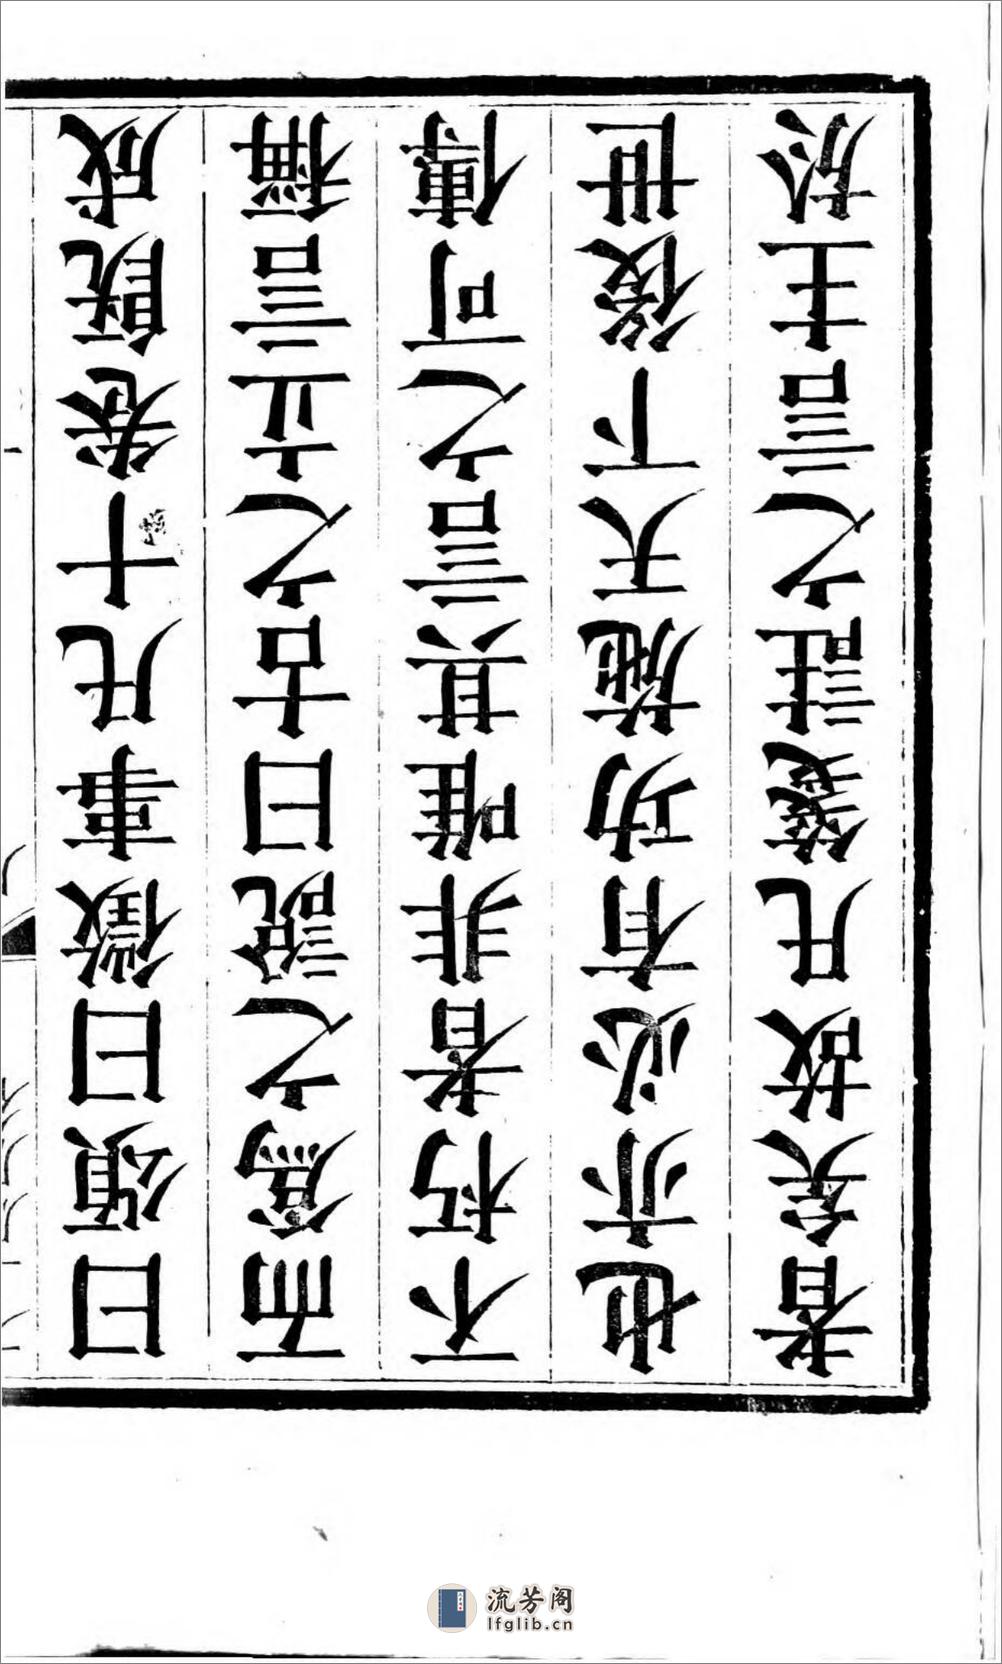 曰頌曰徵事凡十卷既成
而爲之說曰古之立言稱
不朽者非唯其言之可傳
也亦必有功施天下後世
者矣故凡箋註之言主於
流芳阁
lfglib.cn